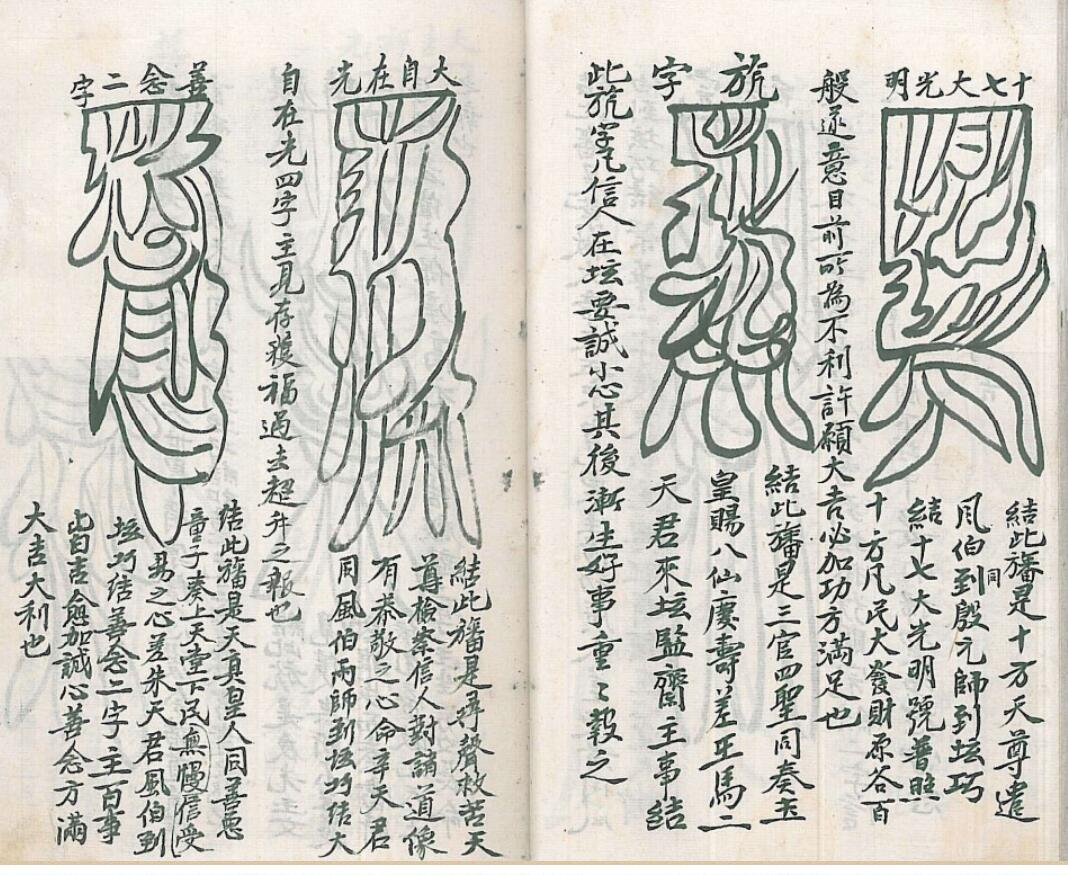 十七大光明
結此旛是十方天尊遣
風伯到同殷元師到坛巧
結十七大光明號普照
十方凡民大發財原谷百
般遂意目前所為不利許願大吉必加功方滿足也
字
結此旛是三官四聖同奏玉
皇賜八仙慶壽差王馬二
天君來坛監齋主事結
此字凡信人在坛要誠小心其後漸生好事重〻報之
大自在光
結此旛是尋聲救苦天
尊檢察信人對誦道像
有恭敬之心命辛天君
同風伯雨師到坛巧结大
自在光四字主見存獲福過去超升之報也
善念二字
结此旛是天真皇人同善惡
童子奏上天堂下民無慢信受
易之心差朱天君風伯到
坛巧结善念二字主百事
皆吉愈加誠心善念方滿
大吉大利也